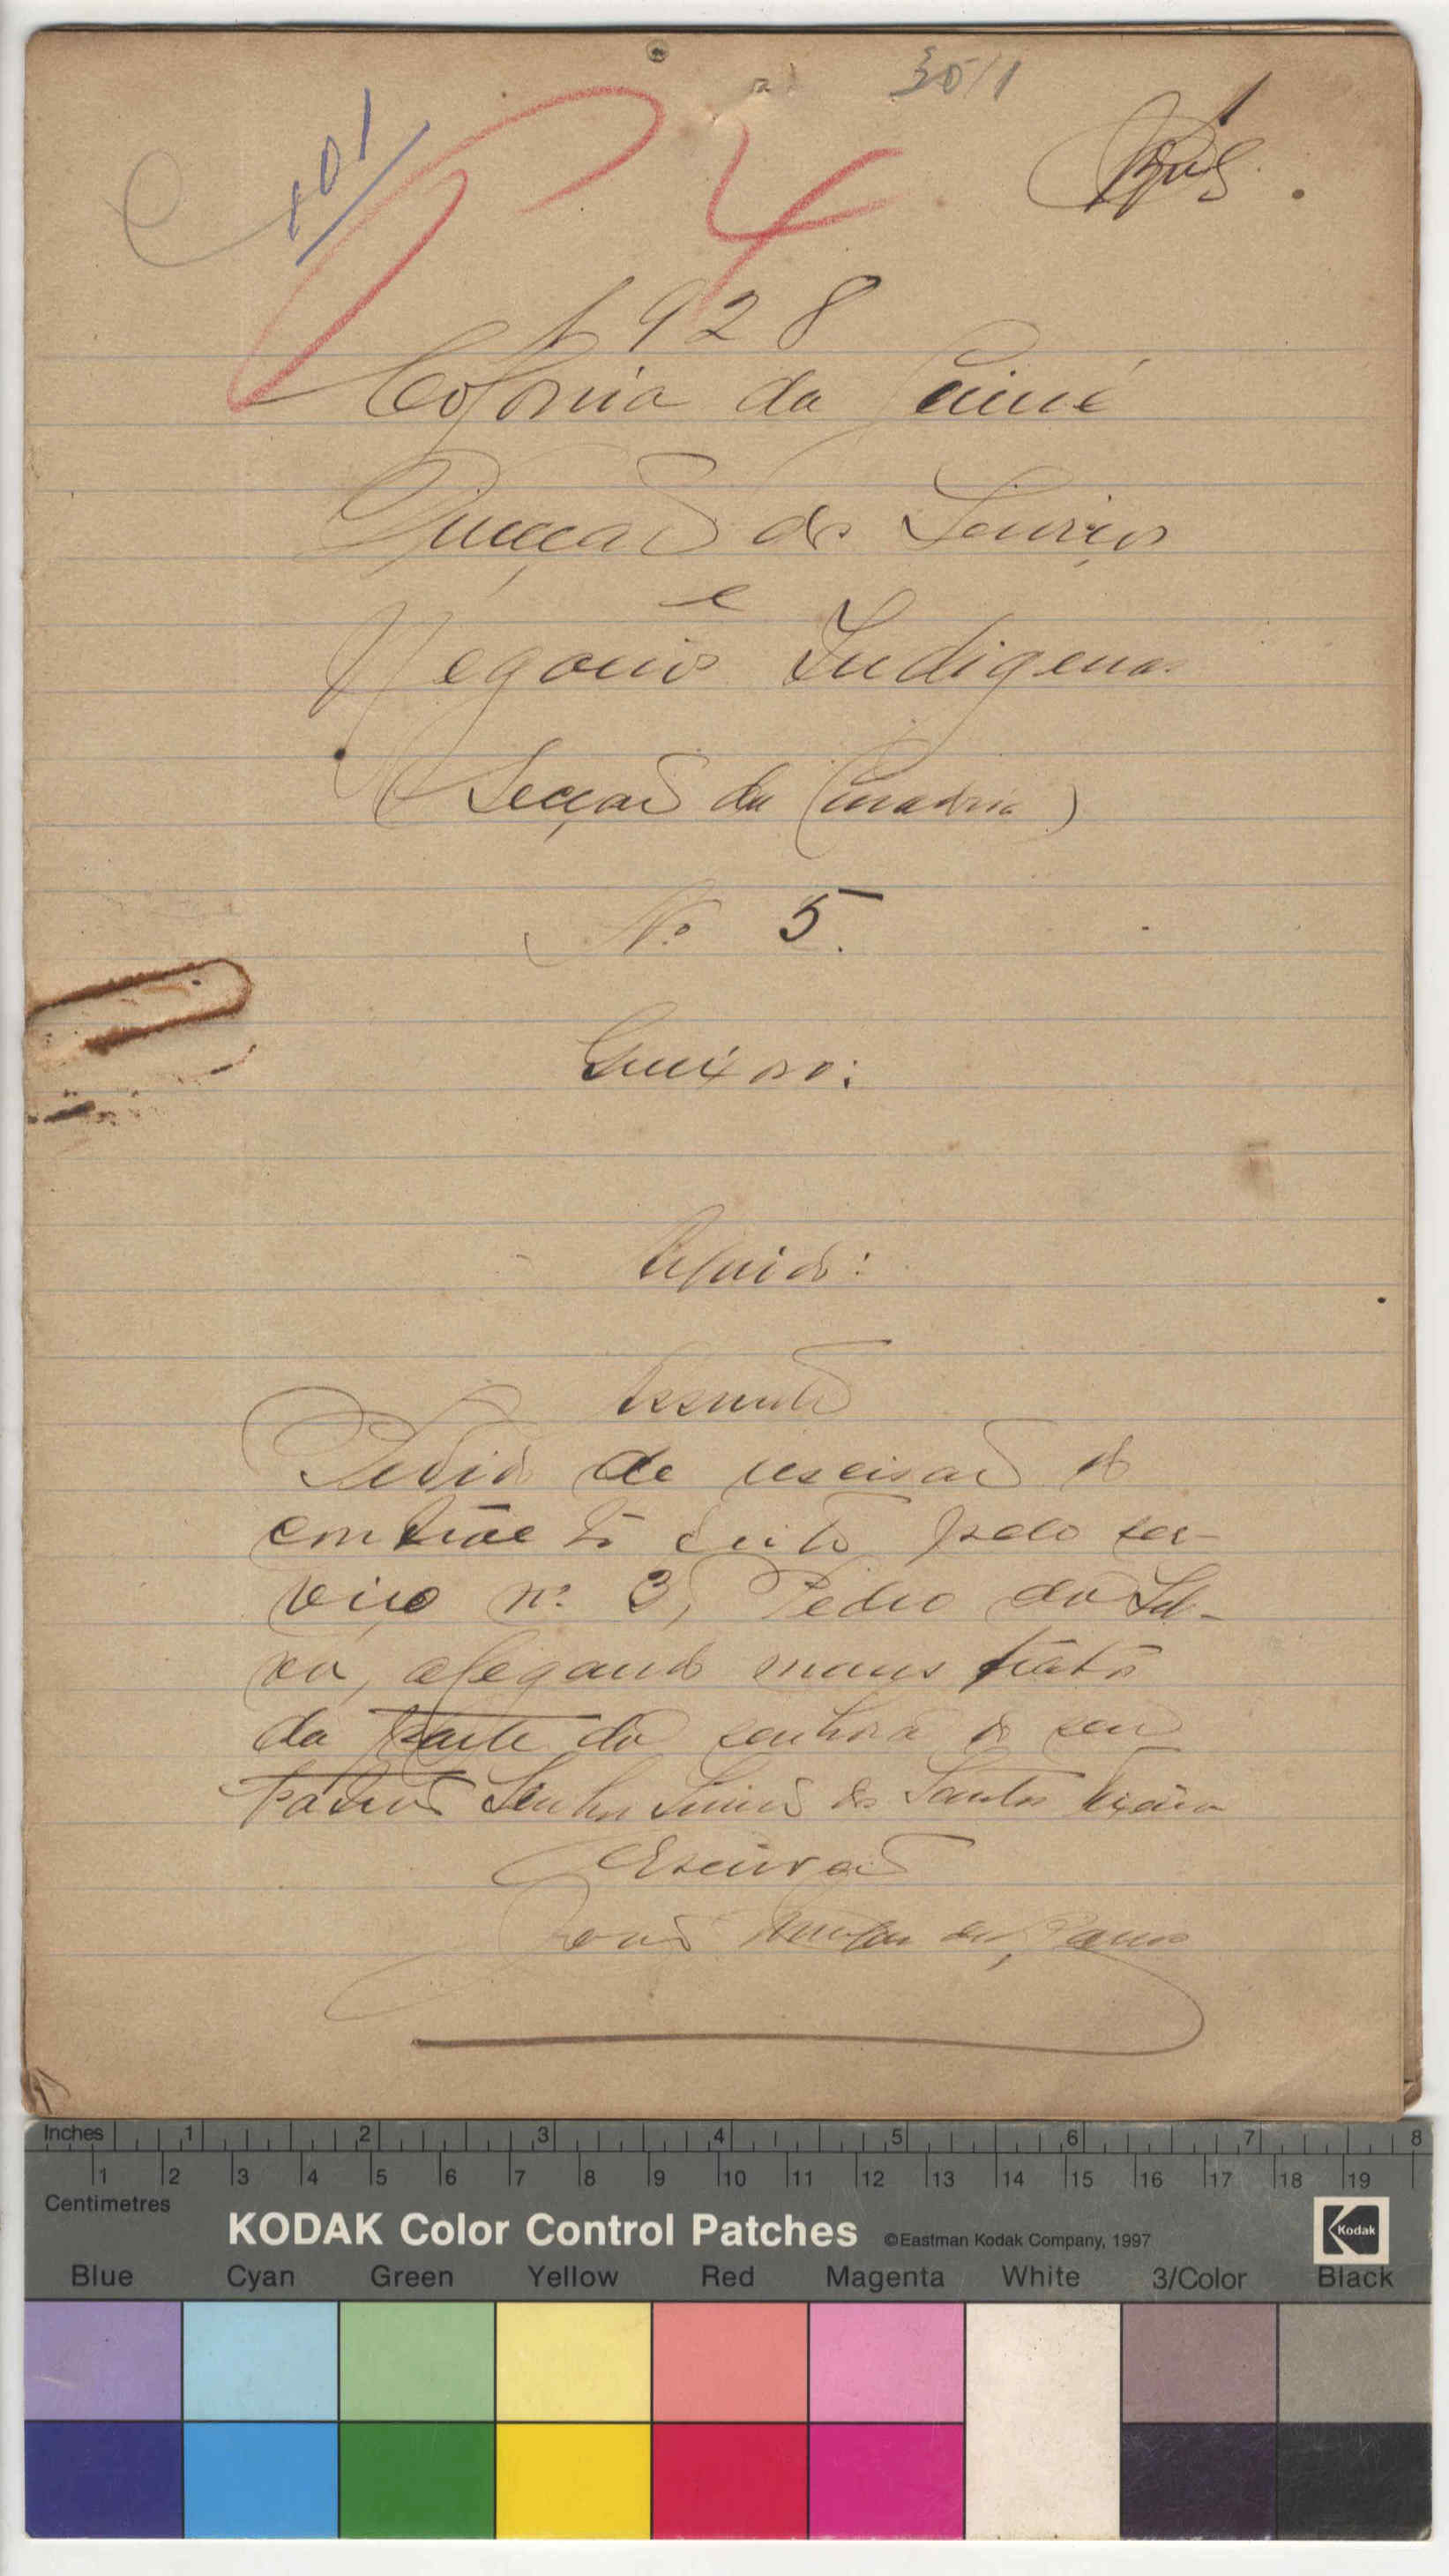 3511
101
4
1928
Colonia da Guiné
Direcção dos Serviços
e
Negocios Indigenas
(Secção da Curadoria)
Nº 5.
Queixoso:
Arguido:
Assunto
Pedido de rescisão do
contracto feito pelo ser-
viço nº 3, Pedro da Sil-
va, alegando maus tratos
da parte da senhora do seu
patrão Senhor dos Santos
Escrivão
Inches 1 2 3 4 5 6 7 8
1 2 3 4 5 6 7 8 9 10 11 12 13 14 15 16 17 18 19
Centimetres
KODAK Color Control Patches ©Eastman Kodak Company, 1997 Kodak
Blue Cyan Green Yellow Red Magenta White 3/Color Black